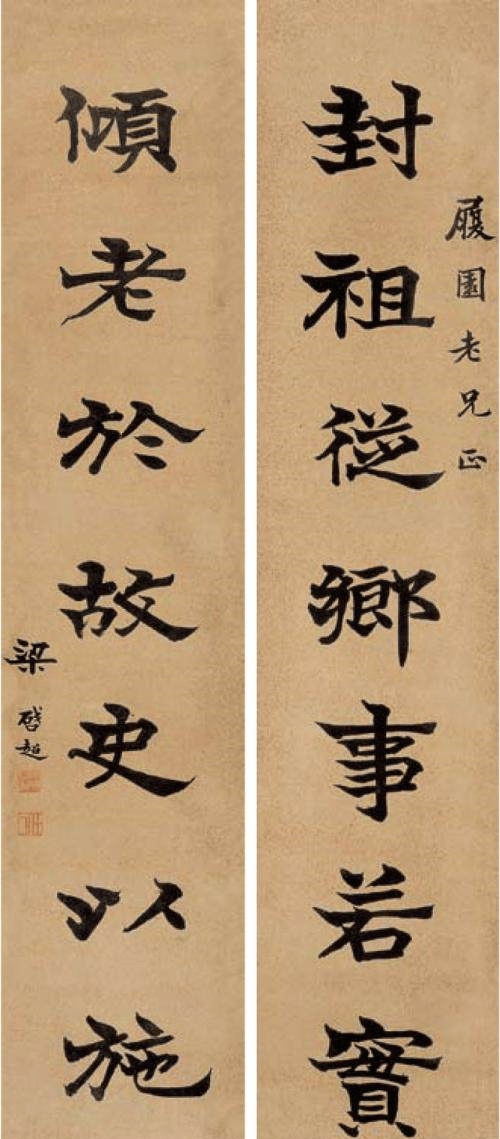 履園老兄正
封祖從鄉事若實
傾老於故史以施
梁啓超